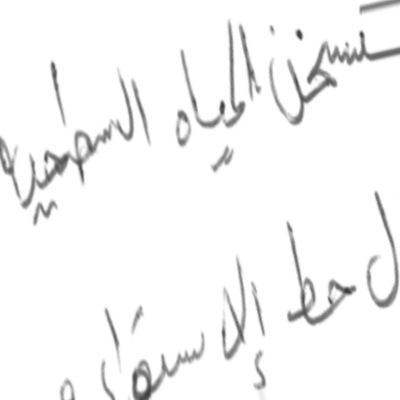 تسخن المياه السطحية
ل خط الإستواء